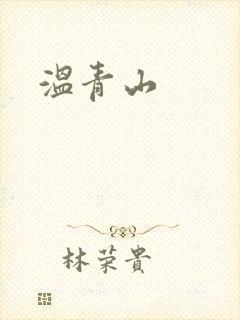 温青山
林荣貴